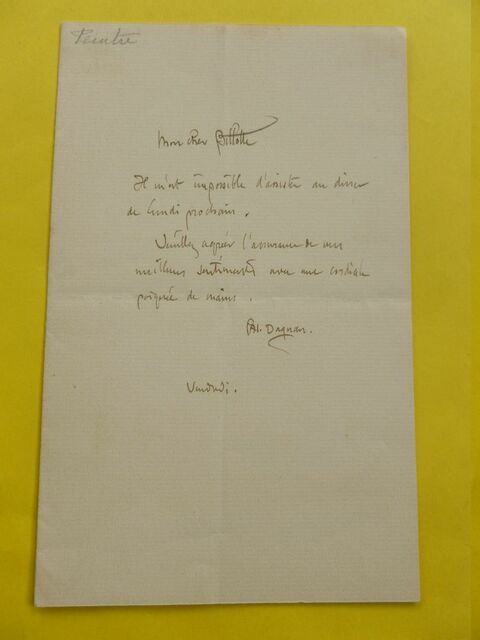 Peintre
Mon cher Billotte
Il m'est impossible d'assister au diner
de Lundi prochain.
Veuillez agréer l'assurance de mes
meilleurs sentiments avec une cordiale
poignée de mains.
Dagnan.
Vendredi.